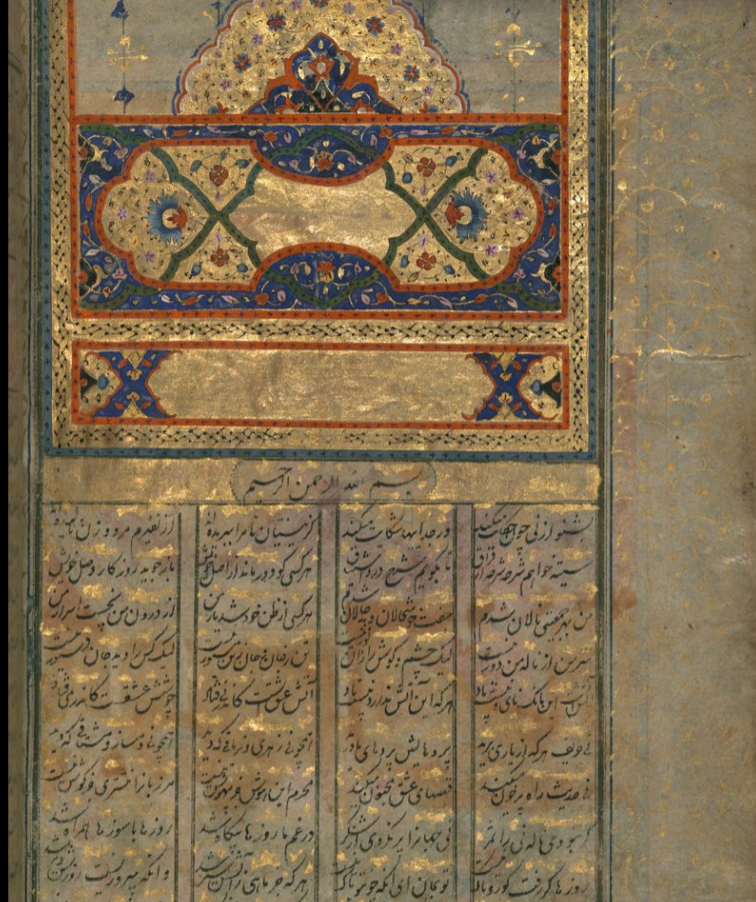 بسم الله الرحمن الرحیم
بشنو از نی چون حکایت میکند در جداییها شکایت میکند کز نیستان تا مرا ببریده‌اند از نفیرم مرد و زن نالیده‌اند
سینه خواهم شرحه شرحه از فراق تا بگویم شرح درد اشتیاق هر کسی کو دور ماند از اصل خویش باز جوید روزگار وصل خویش
من بهر جمعیتی نالان شدم جفت خوشحالان و بدحالان شدم هر کسی از ظن خود شد یار من از درون من نجست اسرار من
سر من از ناله من دور نیست لیک چشم و گوش را آن نور نیست تن ز جان و جان ز تن مستور نیست لیک کس را دید جان دستور نیست
آتشست این بانگ نای و نیست باد هر که این آتش ندارد نیست باد آتش عشقست کاندر نی فتاد جوشش عشقست کاندر می فتاد
نی حریف هر که از یاری برید پردهایش پردهای ما درید همچو نی زهری و تریاقی که دید همچو نی دمساز و مشتاقی که دید
نی حدیث راه پر خون میکند قصهای عشق مجنون میکند محرم این هوش جز بیهوش نیست مر زبان را مشتری جز گوش نیست
گر نبودی ناله نی را ثمر نی جهان را پر نکردی از شکر در غم ما روزها بیگاه شد روزها با سوزها همراه شد
روزها گر رفت گو رو باک نیست تو بمان ای آنکه چون تو پاک نیست هر که جز ماهی ز آبش سیر شد وانکه بی روزیست روزش دیر شد